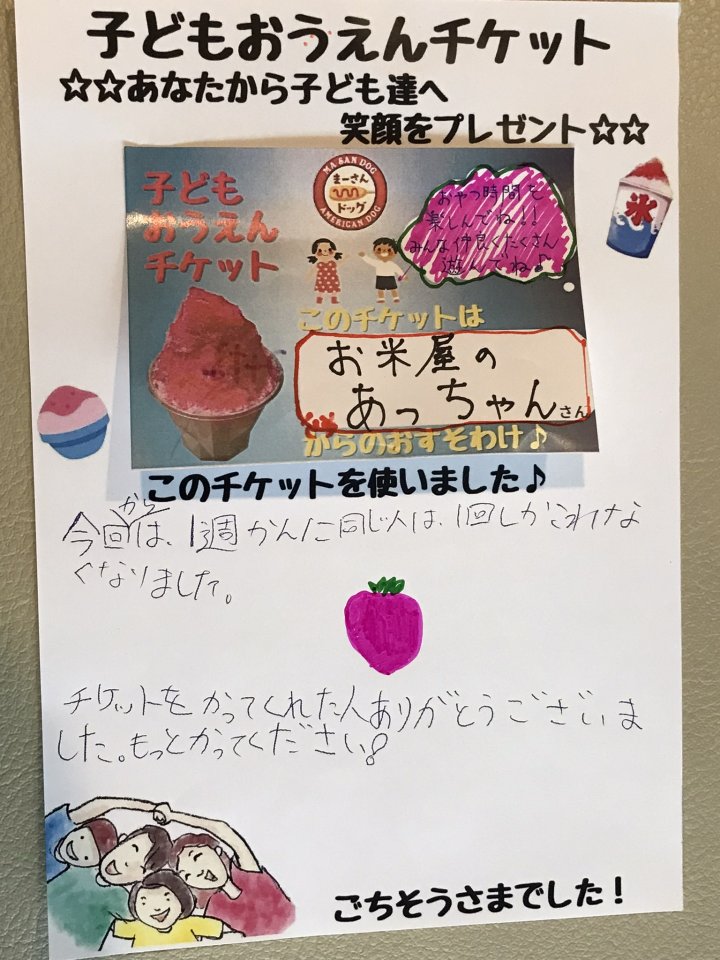 子どもおうえんチケット
☆☆あなたから子ども達へ
笑顔をプレゼント☆☆
子ども
おうえん
チケット
MA SAN DOG
まーさん
ドッグ
AMERICAN DOG
おやつ時間も
楽しんでね!!
みんな仲良くたくさん
遊んでね♪
氷
このチケットは
お米屋の
あっちゃんさん
からのおすそわけ♪
このチケットを使いました♪
から
今回は、1週かんに同じ人は、1回しかこれな
くなりました。
チケットをかってくれた人ありがとうございま
した。もっとかってください!
ごちそうさまでした!